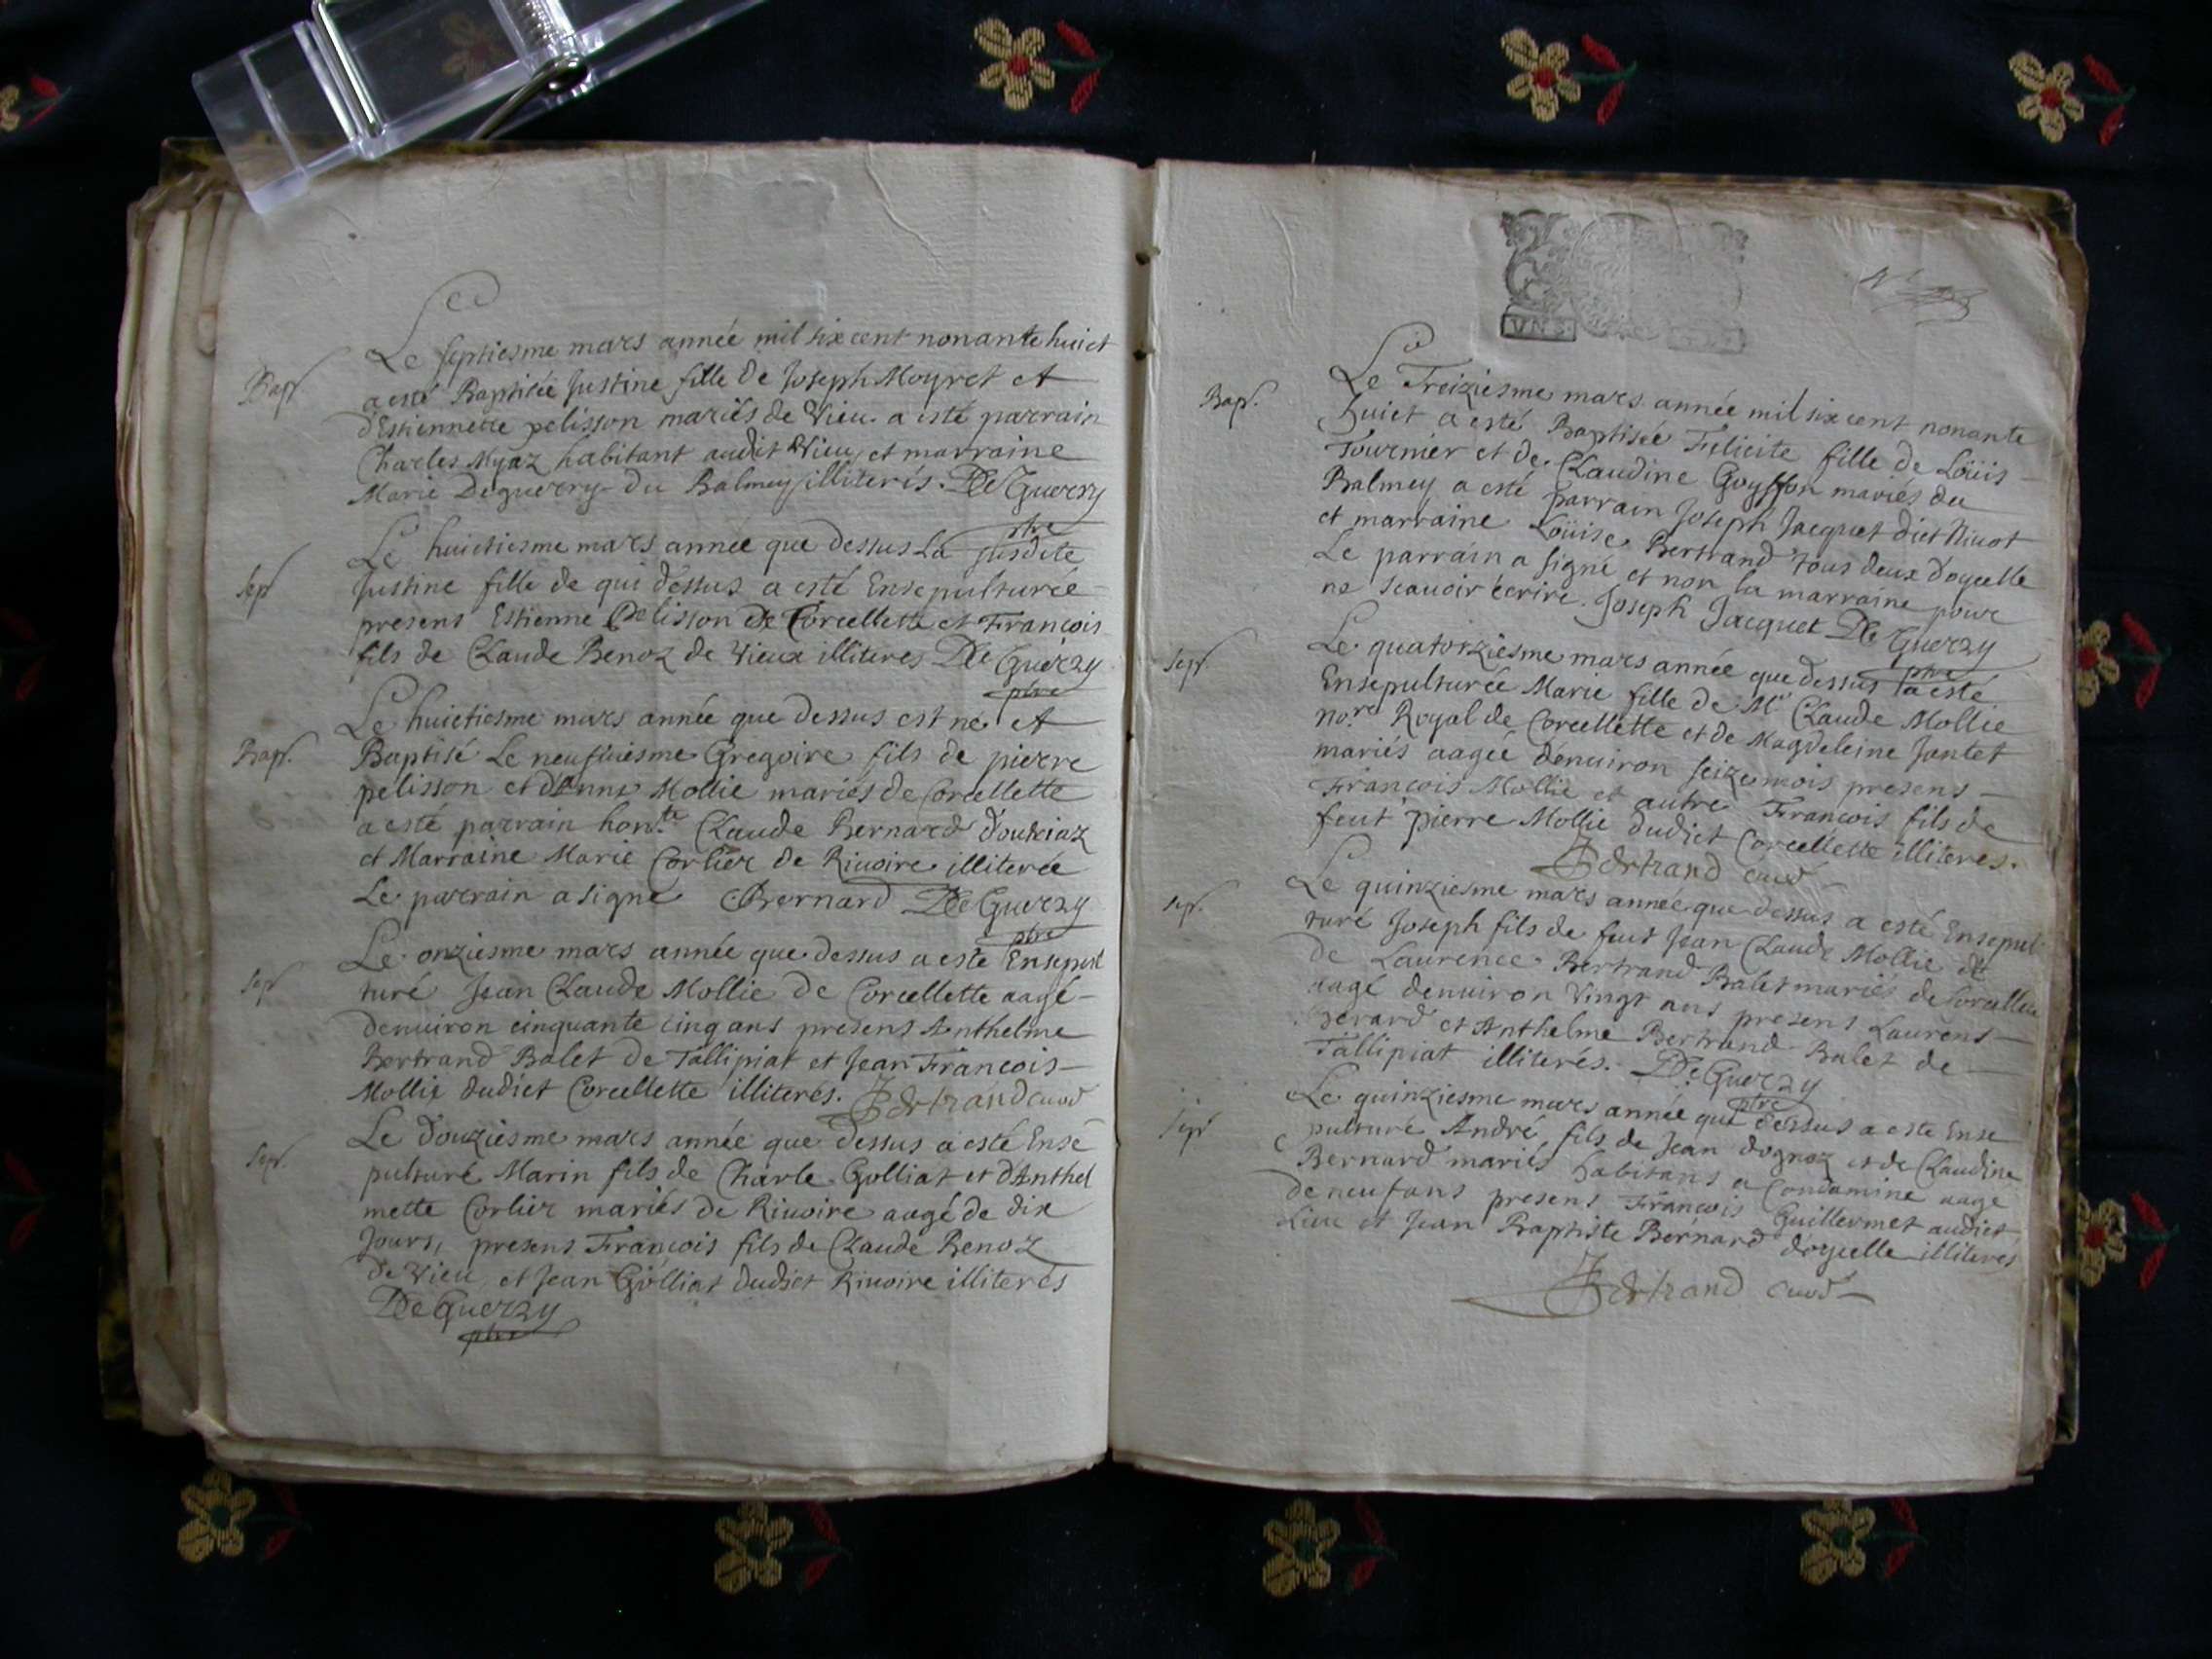 Bapt.
Le septiesme mars année mil six cent nonante huict
a esté Baptisée Justine fille de Joseph Moyret et
d'Estiennette pelisson mariés de Vieu. a esté parrain
Charles Myaz habitant audit Vieu, et marraine
Marie Deguerry du Balmey illiterés. De Guerry
ptre
Sep
Le huictiesme mars année que dessus La susdite
Justine fille de qui dessus a esté Ensepulturée
presens Estienne Pelisson de Corcellette et François
fils de Claude Benoz de Vieux illiteres De Guerry
ptre
Bapt.
Le huictiesme mars année que dessus est né et
Baptisé Le neufviesme Gregoire fils de pierre
pelisson et d'Anne Mollie mariés de Corcellette
a esté parrain hon.te Claude Bernard d'outriaz
et Marraine Marie Corlier de Riuoire illiterée
Le parrain a signé CBernard De Guerry
ptre
Sep
Le onziesme mars année que dessus a esté Ensepul
turé Jean Claude Mollie de Corcellette aagé
denuiron cinquante cinq ans presens Anthelme
Bertrand Balet de Tallipiat et Jean François
Mollie dudict Corcellette illiterés. Bertrand curé
Sep.
Le douziesme mars année que dessus a esté Ense
pulturé Marin fils de Charle Golliat et d'Anthel
mette Corlier mariés de Riuoire aagé de dix
Jours, presens François fils de Claude Benoz
de Vieu, et Jean Golliat dudict Riuoire illiterés
De Guerry
ptre
VN S.
Bap.
Le Treiziesme mars année mil six cent nonante
huict a esté Baptisée Felicite fille de Loüis
Tournier et de Claudine Goyffon mariés du
Balmey a esté parrain Joseph Jacquet dict Niuot
et marraine Loüise Bertrand tous deux d'oycelle
Le parrain a signé et non la marraine pour
ne scauoir écrire. Joseph Jacquet De Guerry
ptre
Sep.
Le quatorziesme mars année que dessus a esté
Ensepulturée Marie fille de Mr Claude Mollie
no.re Royal de Corcellette et de Magdeleine Jantet
mariés aagée dénuiron seize mois presens
François Mollie et autre François fils de
feut pierre Mollie dudict Corcellette illiteres.
Bertrand curé
Sep.
Le quinziesme mars année que dessus a esté Ensepul
turé Joseph fils de feut Jean Claude Mollie et
de Laurence Bertrand Balet mariés de Corcellette
aagé denuiron Vingt ans presens Laurens
Gerard et Anthelme Bertrand Balet de
Tallipiat illiterés. De Guerry
ptre
Sep
Le quinziesme mars année que dessus a esté Ense
pulturé André fils de Jean dognoz et de Claudine
Bernard mariés habitans a Condamine aagé
de neuf ans presens François Guillermet audict
Lieu et Jean Baptiste Bernard d'oyselle illiteres
Bertrand curé